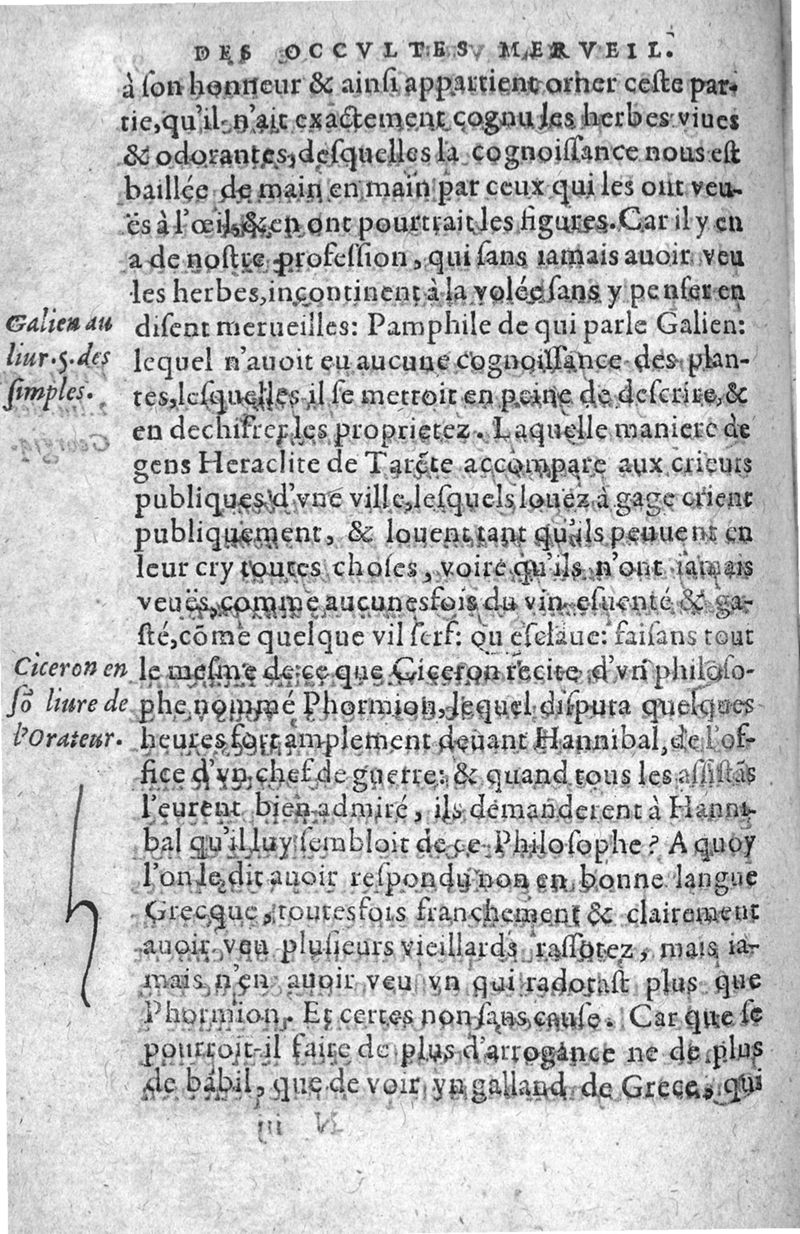 DES OCCVLTES MERVEIL.
à ſon honneur & ainſi appartient orner ceſte par-
tie, qu'il n'ait exactement cognu les herbes viues
& odorantes, deſquelles la cognoiſſance nous eſt
baillée de main en main par ceux qui les ont veu-
ës à l'œil, & en ont pourtrait les figures. Car il y en
a de noſtre profeſſion, qui ſans iamais auoir veu
les herbes, incontinent à la volée ſans y penſer en
Galien au
liur. 5. des
ſimples.
diſent merueilles: Pamphile de qui parle Galien:
lequel n'auoit eu aucune cognoiſſance des plan-
tes, leſquelles il ſe mettoit en peine de deſcrire, &
en dechifrer les proprietez. Laquelle maniere de
gens Heraclite de Tarẽte accompare aux crieurs
publiques d'vne ville, leſquels louez à gage crient
publiquement, & louent tant qu'ils peuuent en
leur cry toutes choſes, voire qu'ils n'ont iamais
veuës, comme aucunesfois du vin eſuenté & ga-
ſté, cõme quelque vil ſerf: ou eſclaue: faiſans tout
Ciceron en
ſõ liure de
l'Orateur.
le meſme de ce que Ciceron recite d'vn philoſo-
phe nommé Phormion, lequel diſputa quelques
heures fort amplement deuant Hannibal, de l'of-
fice d'vn chef de guerre: & quand tous les aſſiſtãs
l'eurent bien admiré, ils demanderent à Hanni-
bal qu'il luy ſembloit de ce Philoſophe? A quoy
l'on le dit auoir reſpondu non en bonne langue
Grecque, toutesfois franchement & clairement
auoir veu pluſieurs vieillards raſſotez, mais ia-
mais n'en auoir veu vn qui radotaſt plus que
Phormion. Et certes non ſans cauſe. Car que ſe
pourroit-il faire de plus d'arrogance ne de plus
de babil, que de voir vn galland de Grece, qui